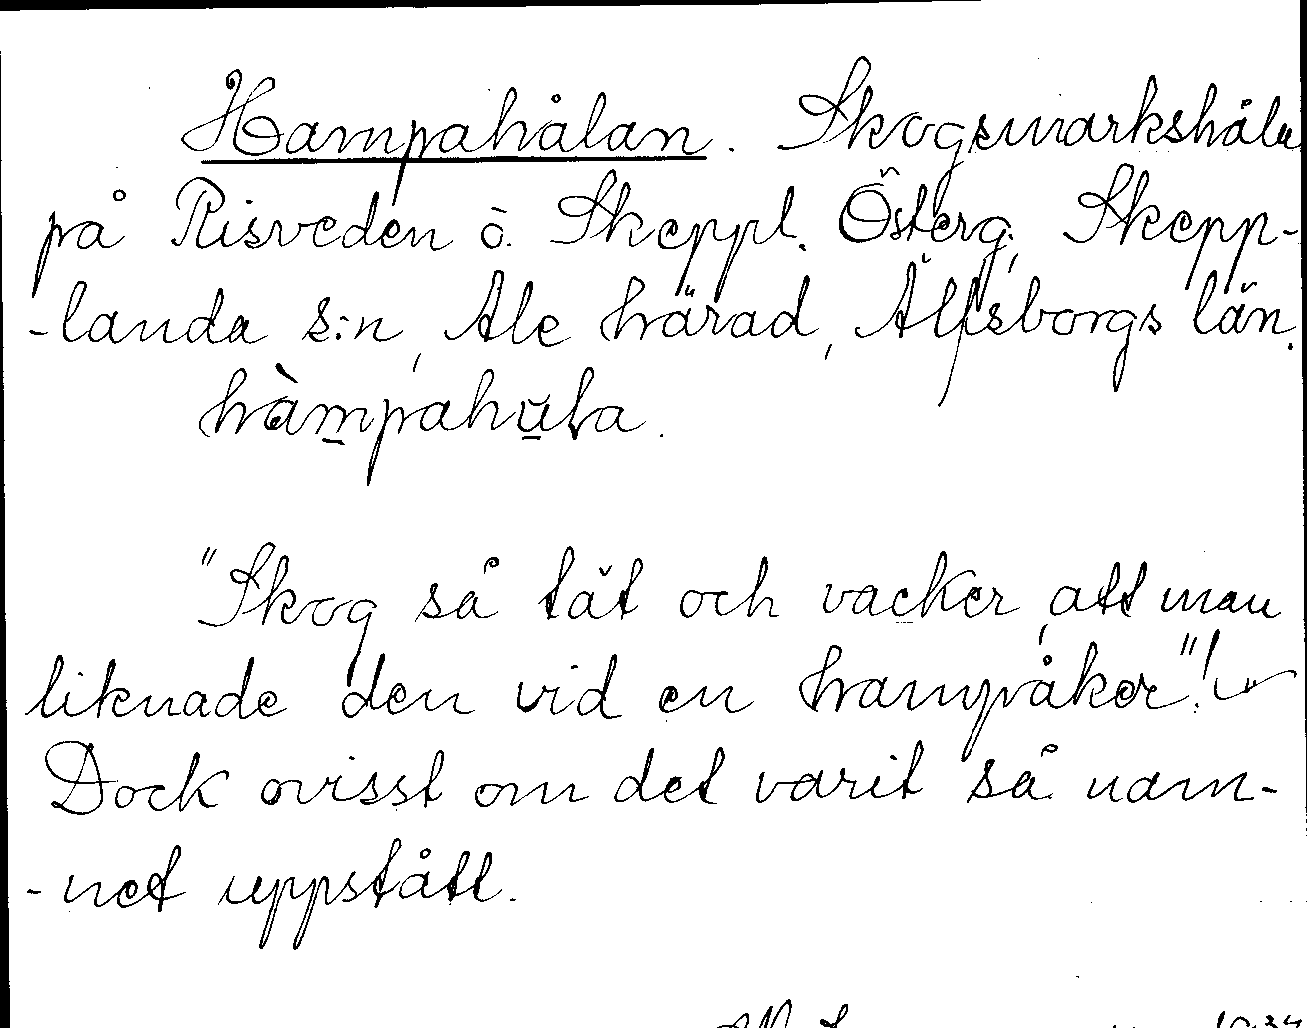 Hampahålan. Skogsmarkshåla
på Risveden ö. Skeppl. Österg. Skepp-
-landa s:n, Ale härad, Älfsborgs län.
hàmpahula.
"Skog så tät och vacker, att man
liknade den vid en hampåker"!
Dock ovisst om det varit så nam-
-net uppstått.